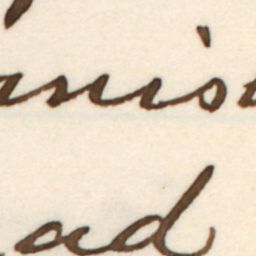 anis
ad